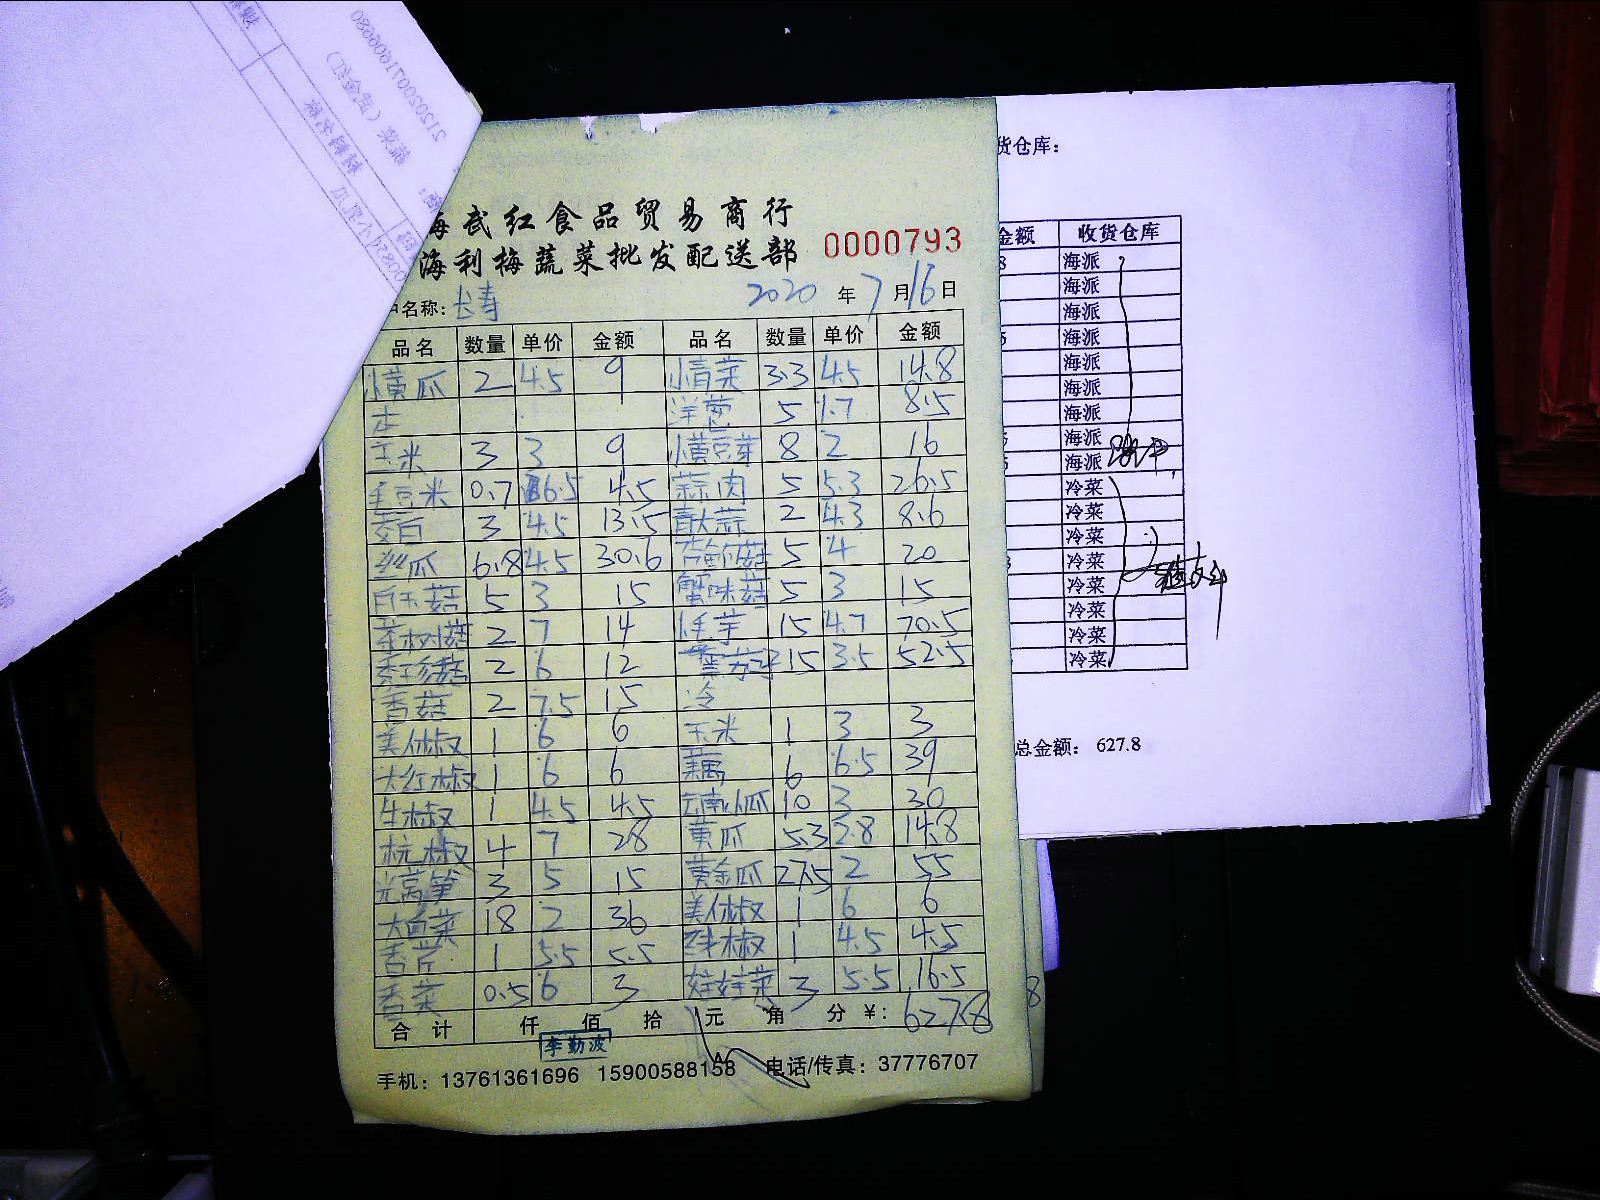 海武红食品贸易商行
海利梅蔬菜批发配送部 0000793
户名称: 长寿 2020 年 7 月 16 日
品名 数量 单价 金额 品名 数量 单价 金额
小黄瓜 2 4.5 9 小青菜 3.3 4.5 14.8
洋葱 5 1.7 8.5
玉米 3 3 9 小黄豆芽 8 2 16
毛豆米 0.7 6.5 4.5 蒜肉 5 5.3 26.5
茭白 3 4.5 13.5 大蒜 2 4.3 8.6
丝瓜 6.8 4.5 30.6 杏鲍菇 5 4 20
白玉菇 5 3 15 蟹味菇 5 3 15
茶树菇 2 7 14 毛芋 15 4.7 70.5
秀珍菇 2 6 12 15 3.5 52.5
香菇 2 7.5 15 冷
美人椒 1 6 6 玉米 1 3 3
大红椒 1 6 6 藕 6 6.5 39
牛椒 1 4.5 4.5 云南小瓜 10 3 30
杭椒 4 7 28 黄瓜 5.3 2.8 14.8
光莴笋 3 5 15 黄金瓜 27.5 2 55
大白菜 18 2 36 美人椒 1 6 6
香芹 1 5.5 5.5 椒 1 4.5 4.5
香菜 0.5 6 3 娃娃菜 3 5.5 16.5
合计 仟 佰 拾 元 角 分 ¥: 627.8
李勤波
手机: 13761361696 15900588158 电话/传真: 37776707
货仓库:
金额 收货仓库
8 海派
海派
海派
海派
海派
海派
海派
海派
海派
冷菜
冷菜
冷菜
冷菜
冷菜
冷菜
冷菜
冷菜
总金额: 627.8
8